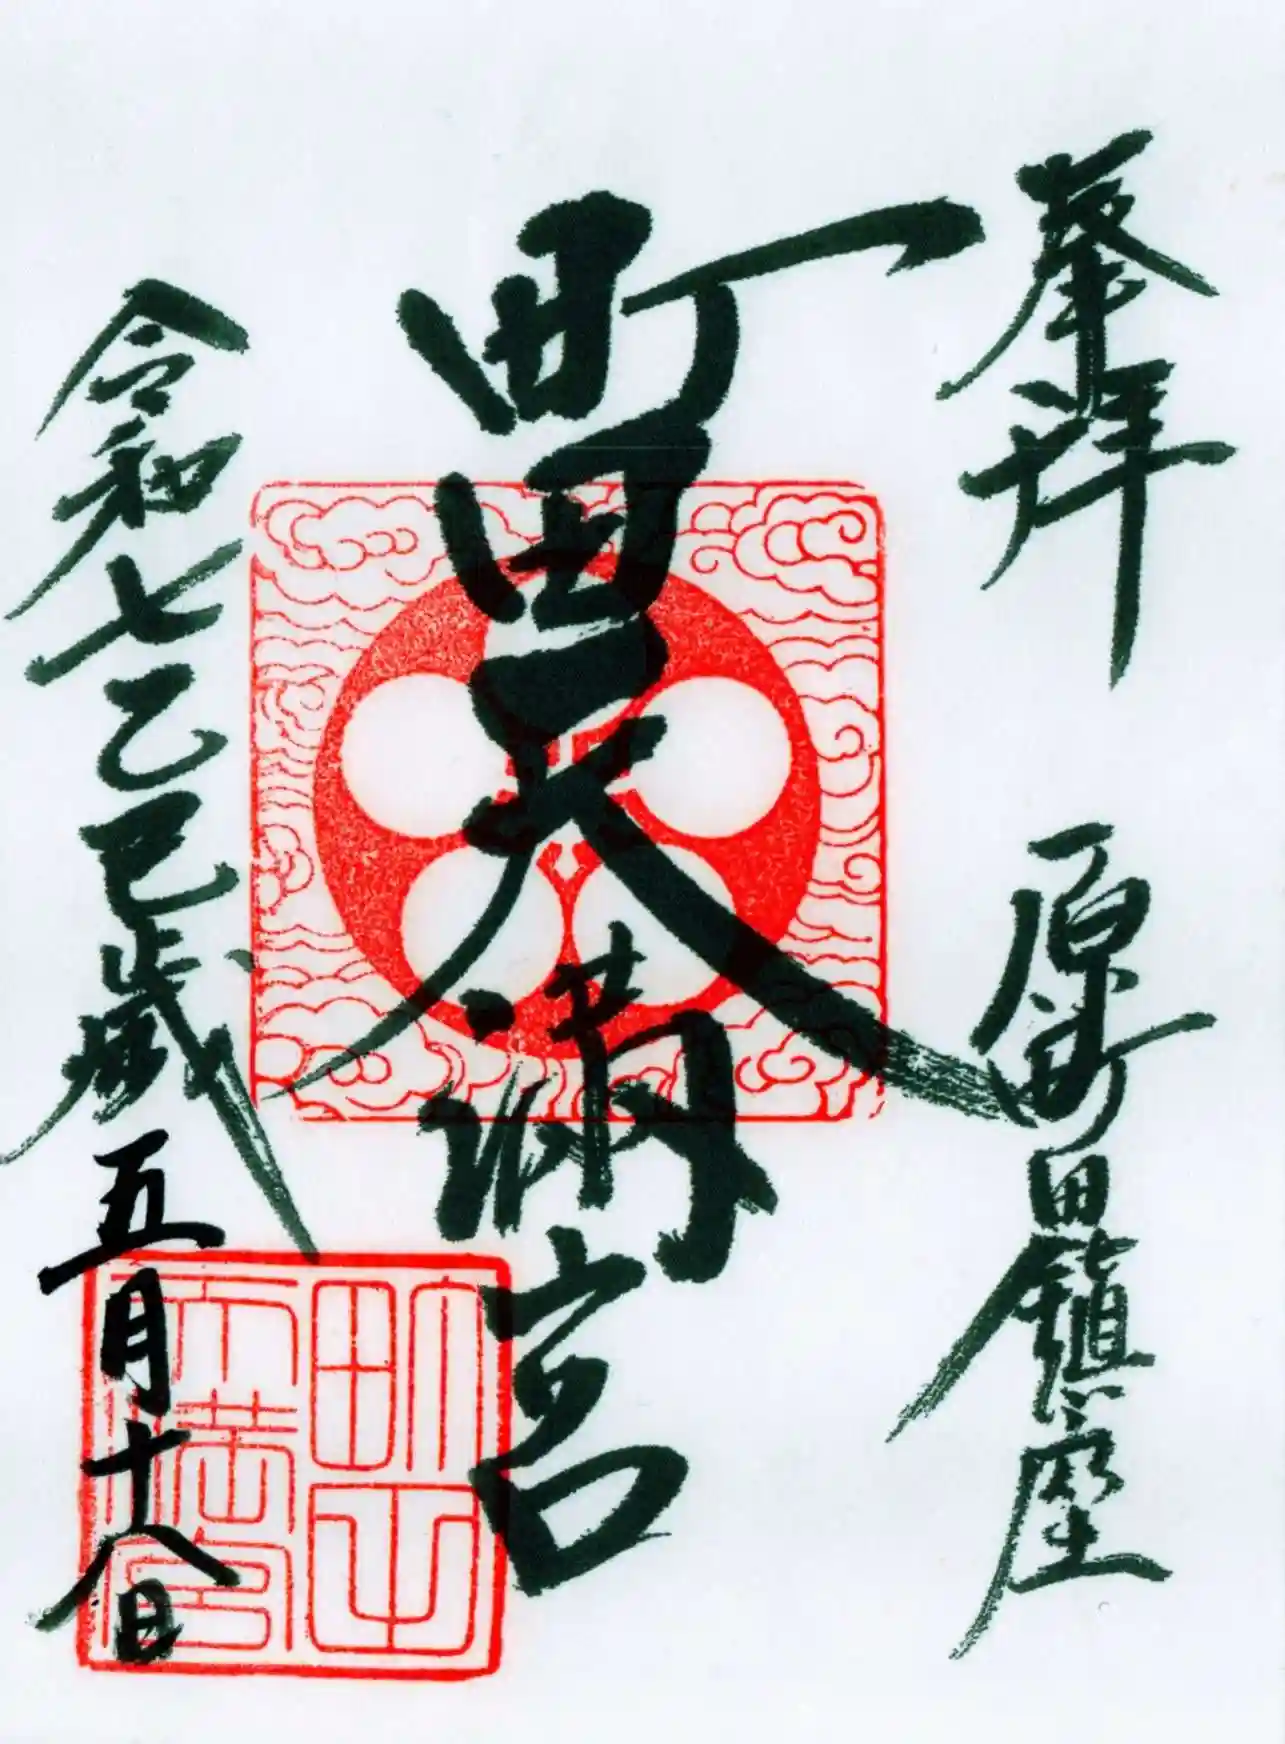 奉拝 原町田鎮座
町田天満宮
令和七乙巳歳五月十八日
町田天満宮